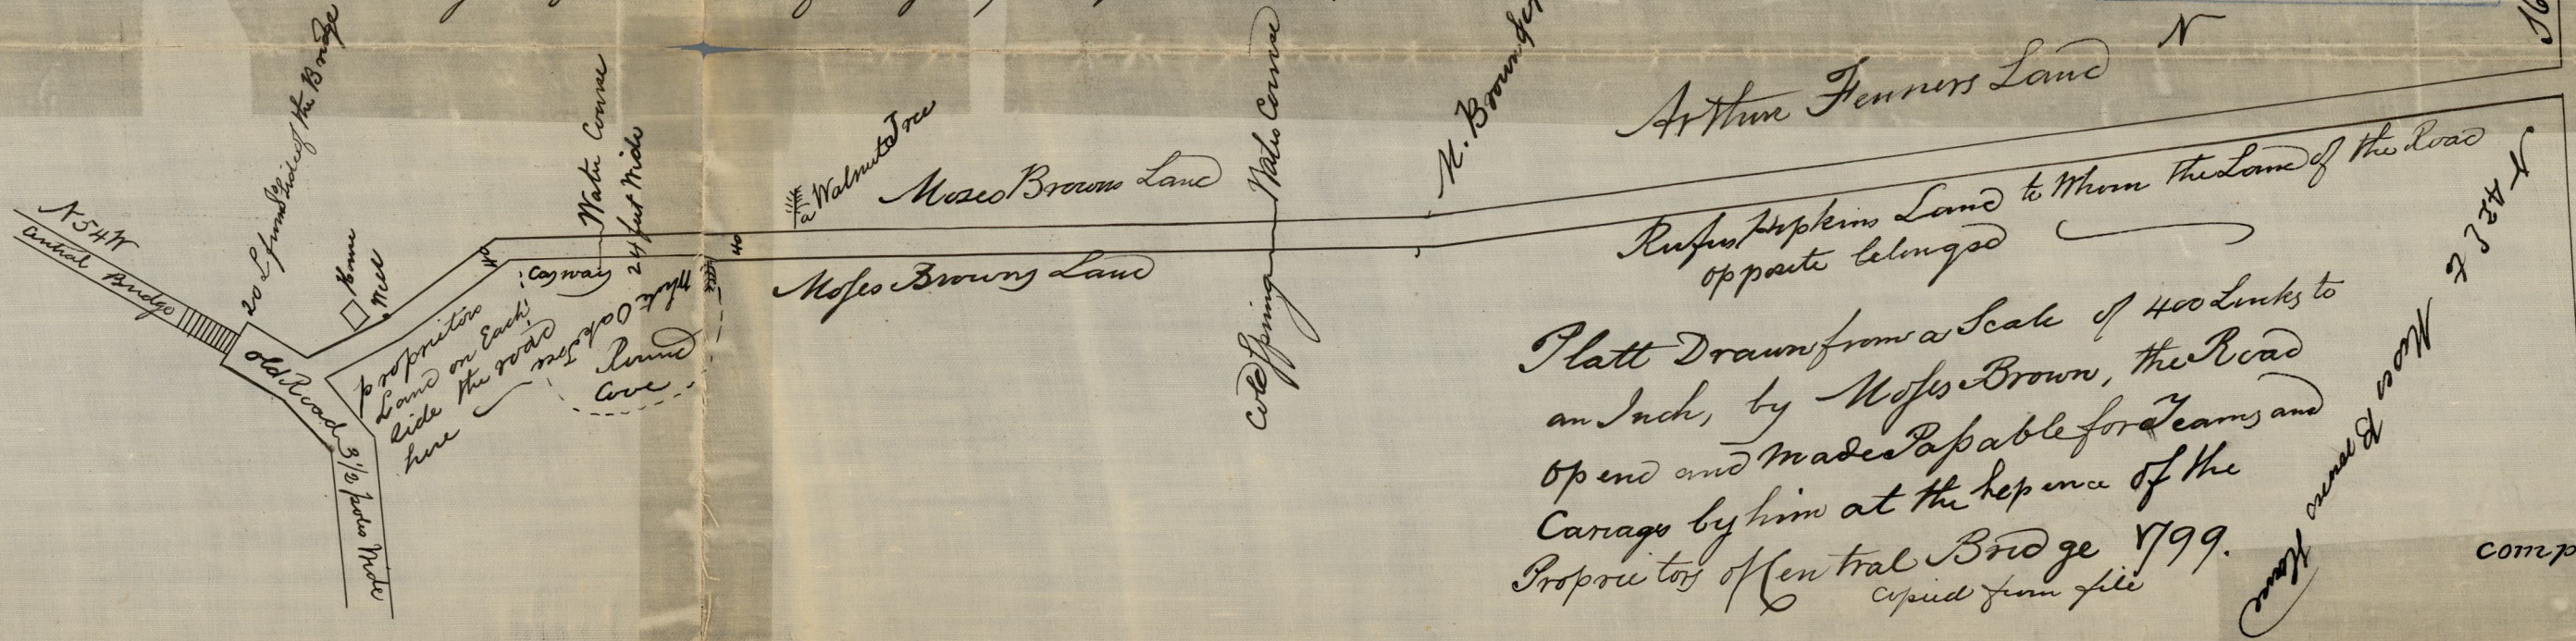 N 54 W
Central Bridge
20 L from S Side of the Bridge
House
Well
Old Road 3 1/2 poles Wide
40
proprietors
Land on Each
Side the road
here
Casway
Water Course
24 feet Wide
White Oak Tree
Round
Cove
40
a Walnut Tree
Moses Browns Land
Moses Browns Land
Cold Spring Water Course
M. Brown
Arthur Fenners Land
N
Rufus Hopkins Land to Whom the Land of the Road
opposite belonged
Platt Drawn from a Scale of 400 Links to
an Inch, by Moses Brown, the Road
opend and made Passable for Teams and
Cariages by him at the Expence of the
Proprietors of Central Bridge 1799.
Copied from file
Moses Browns House
comp